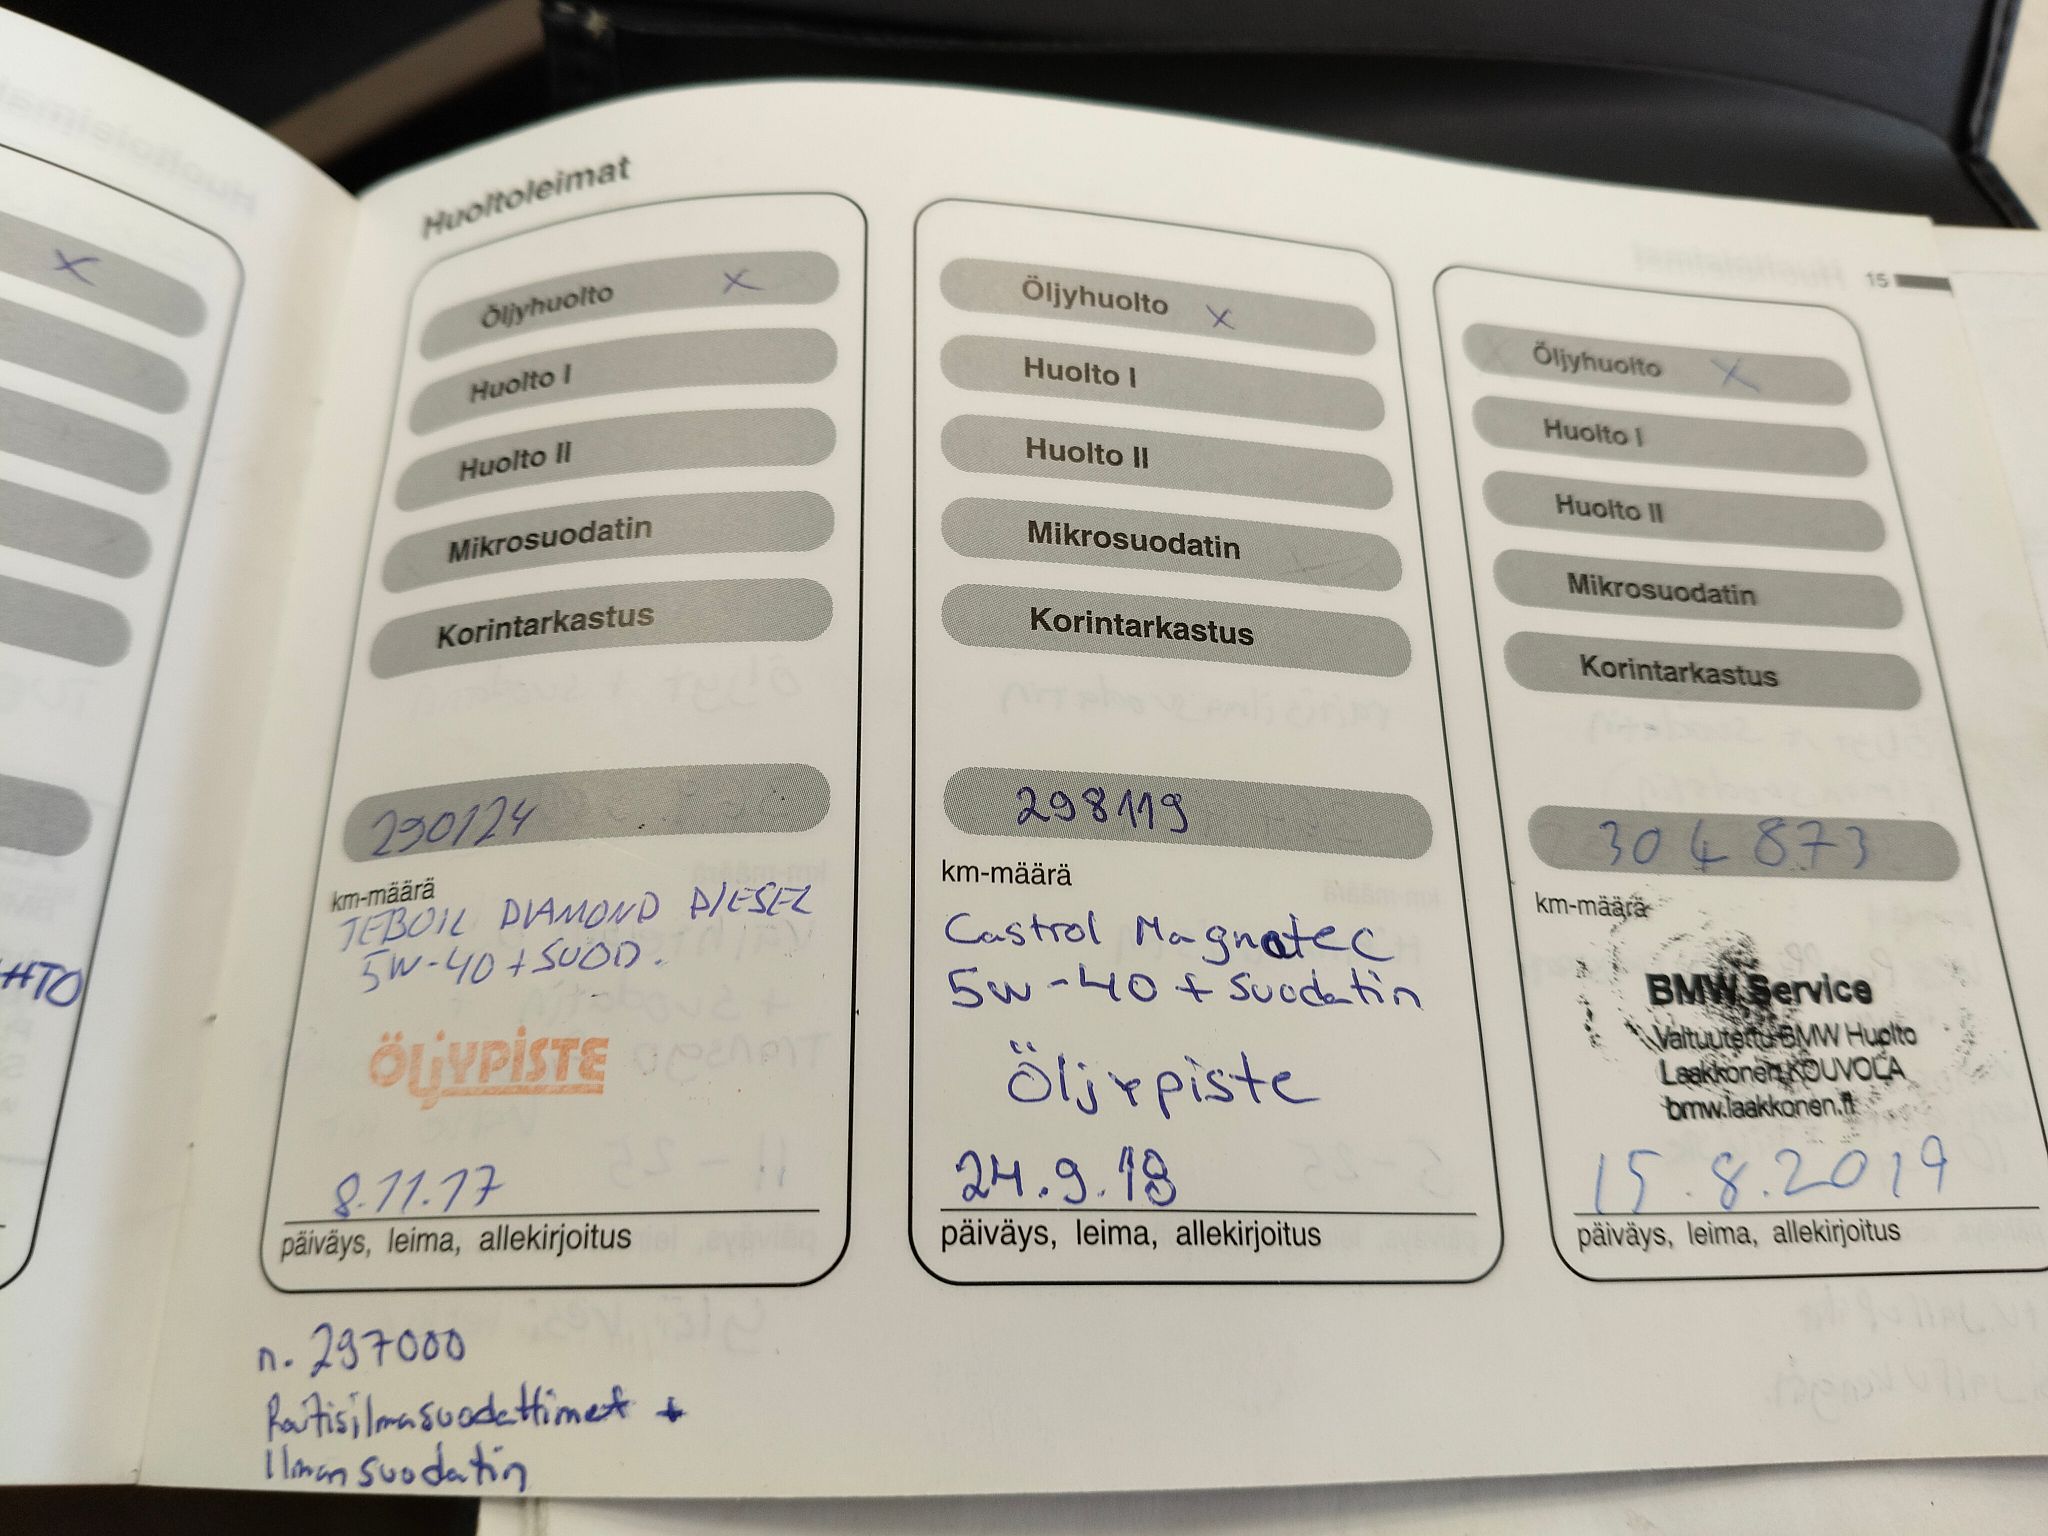 Huoltoleimat
15
Öljyhuolto x
Huolto I
Huolto II
Mikrosuodatin
Korintarkastus
290124
km-määrä
TEBOIL DIAMOND DIESEL
5W-40 + SUOD.
ÖLJYPISTE
8.11.17
päiväys, leima, allekirjoitus
n. 297000
Raitisilmasuodattimet +
Ilman suodatin
Öljyhuolto x
Huolto I
Huolto II
Mikrosuodatin
Korintarkastus
298119
km-määrä
Castrol Magnatec
5w-40 + suodatin
Öljypiste
24.9.18
päiväys, leima, allekirjoitus
Öljyhuolto x
Huolto I
Huolto II
Mikrosuodatin
Korintarkastus
304873
km-määrä
BMW Service
Valtuutettu BMW Huolto
Laakkonen KOUVOLA
bmw.laakkonen.fi
15.8.2019
päiväys, leima, allekirjoitus